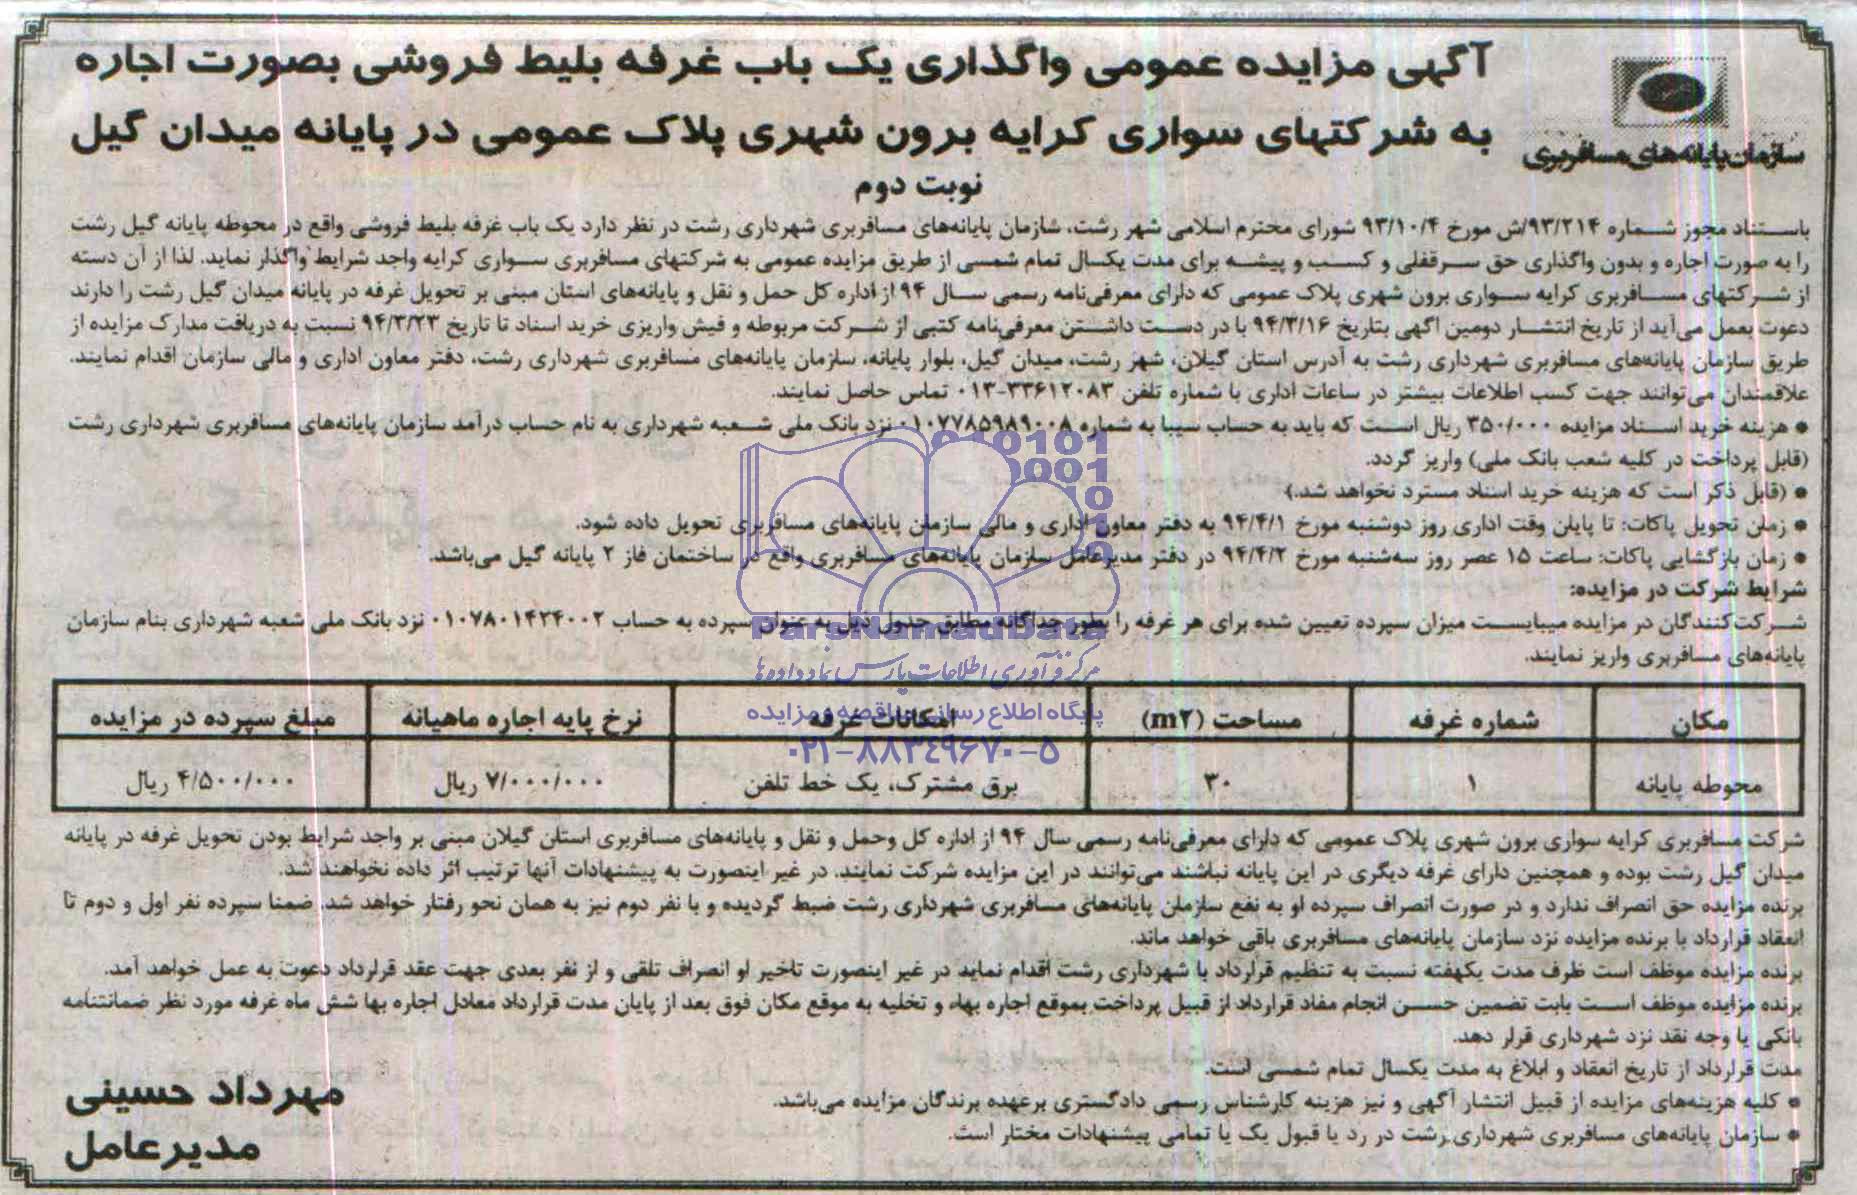 آگهی مزایده عمومی واگذاری یک باب غرفه بلیط فروشی بصورت اجاره
به شرکتهای سواری کرایه برون شهری پلاک عمومی در پایانه میدان گیل
سازمان پایانه‌های مسافربری
نوبت دوم
باستناد مجوز شماره ۹۳/۲۱۴/ش مورخ ۹۳/۱۰/۴ شورای محترم اسلامی شهر رشت، سازمان پایانه‌های مسافربری شهرداری رشت در نظر دارد یک باب غرفه بلیط فروشی واقع در محوطه پایانه گیل رشت
را به صورت اجاره و بدون واگذاری حق سرقفلی و کسب و پیشه برای مدت یکسال تمام شمسی از طریق مزایده عمومی به شرکتهای مسافربری سواری کرایه واجد شرایط واگذار نماید. لذا از آن دسته
از شرکتهای مسافربری کرایه سواری برون شهری پلاک عمومی که دارای معرفی‌نامه رسمی سال ۹۴ از اداره کل حمل و نقل و پایانه‌های استان مبنی بر تحویل غرفه در پایانه میدان گیل رشت را دارند
دعوت بعمل می‌آید از تاریخ انتشار دومین اگهی بتاریخ ۹۴/۳/۱۶ با در دست داشتن معرفی‌نامه کتبی از شرکت مربوطه و فیش واریزی خرید اسناد تا تاریخ ۹۴/۳/۲۳ نسبت به دریافت مدارک مزایده از
طریق سازمان پایانه‌های مسافربری شهرداری رشت به آدرس استان گیلان، شهر رشت، میدان گیل، بلوار پایانه، سازمان پایانه‌های مسافربری شهرداری رشت، دفتر معاون اداری و مالی سازمان اقدام نمایند.
علاقمندان می‌توانند جهت کسب اطلاعات بیشتر در ساعات اداری با شماره تلفن ۳۳۶۱۲۰۸۳-۰۱۳ تماس حاصل نمایند.
• هزینه خرید اسناد مزایده ۳۵۰/۰۰۰ ریال است که باید به حساب سیبا به شماره ۰۱۰۷۷۸۵۹۸۹۰۰۸ نزد بانک ملی شعبه شهرداری به نام حساب درآمد سازمان پایانه‌های مسافربری شهرداری رشت
(قابل پرداخت در کلیه شعب بانک ملی) واریز گردد.
• (قابل ذکر است که هزینه خرید اسناد مسترد نخواهد شد.)
• زمان تحویل پاکات: تا پایان وقت اداری روز دوشنبه مورخ ۹۴/۴/۱ به دفتر معاون اداری و مالی سازمان پایانه‌های مسافربری تحویل داده شود.
• زمان بازگشایی پاکات: ساعت ۱۵ عصر روز سه‌شنبه مورخ ۹۴/۴/۲ در دفتر مدیرعامل سازمان پایانه‌های مسافربری واقع در ساختمان فاز ۲ پایانه گیل می‌باشد.
شرایط شرکت در مزایده:
شرکت‌کنندگان در مزایده میبایست میزان سپرده تعیین شده برای هر غرفه را بطور جداگانه مطابق جدول ذیل به عنوان سپرده به حساب ۰۱۰۷۸۰۱۴۳۴۰۰۲ نزد بانک ملی شعبه شهرداری بنام سازمان
پایانه‌های مسافربری واریز نمایند.
ParsNamadData
مرکز فرآوری اطلاعات پارس نماد داده‌ها
پایگاه اطلاع رسانی مناقصه و مزایده
۰۲۱-۸۸۳۴۹۶۷۰-۵
مکان شماره غرفه مساحت (m۲) امکانات غرفه نرخ پایه اجاره ماهیانه مبلغ سپرده در مزایده
محوطه پایانه ۱ ۳۰ برق مشترک، یک خط تلفن ۷/۰۰۰/۰۰۰ ریال ۴/۵۰۰/۰۰۰ ریال
شرکت مسافربری کرایه سواری برون شهری پلاک عمومی که دارای معرفی‌نامه رسمی سال ۹۴ از اداره کل وحمل و نقل و پایانه‌های مسافربری استان گیلان مبنی بر واجد شرایط بودن تحویل غرفه در پایانه
میدان گیل رشت بوده و همچنین دارای غرفه دیگری در این پایانه نباشند می‌توانند در این مزایده شرکت نمایند. در غیر اینصورت به پیشنهادات آنها ترتیب اثر داده نخواهند شد.
برنده مزایده حق انصراف ندارد و در صورت انصراف سپرده او به نفع سازمان پایانه‌های مسافربری شهرداری رشت ضبط گردیده و با نفر دوم نیز به همان نحو رفتار خواهد شد. ضمنا سپرده نفر اول و دوم تا
انعقاد قرارداد با برنده مزایده نزد سازمان پایانه‌های مسافربری باقی خواهد ماند.
برنده مزایده موظف است ظرف مدت یکهفته نسبت به تنظیم قرارداد با شهرداری رشت اقدام نماید در غیر اینصورت تاخیر او انصراف تلقی و از نفر بعدی جهت عقد قرارداد دعوت به عمل خواهد آمد.
برنده مزایده موظف است بابت تضمین حسن انجام مفاد قرارداد از قبیل پرداخت بموقع اجاره بهاء و تخلیه به موقع مکان فوق بعد از پایان مدت قرارداد معادل اجاره بها شش ماه غرفه مورد نظر ضمانتنامه
بانکی یا وجه نقد نزد شهرداری قرار دهد.
مدت قرارداد از تاریخ انعقاد و ابلاغ به مدت یکسال تمام شمسی است.
• کلیه هزینه‌های مزایده از قبیل انتشار آگهی و نیز هزینه کارشناس رسمی دادگستری برعهده برندگان مزایده می‌باشد.
• سازمان پایانه‌های مسافربری شهرداری رشت در رد یا قبول یک یا تمامی پیشنهادات مختار است.
مهرداد حسینی
مدیرعامل